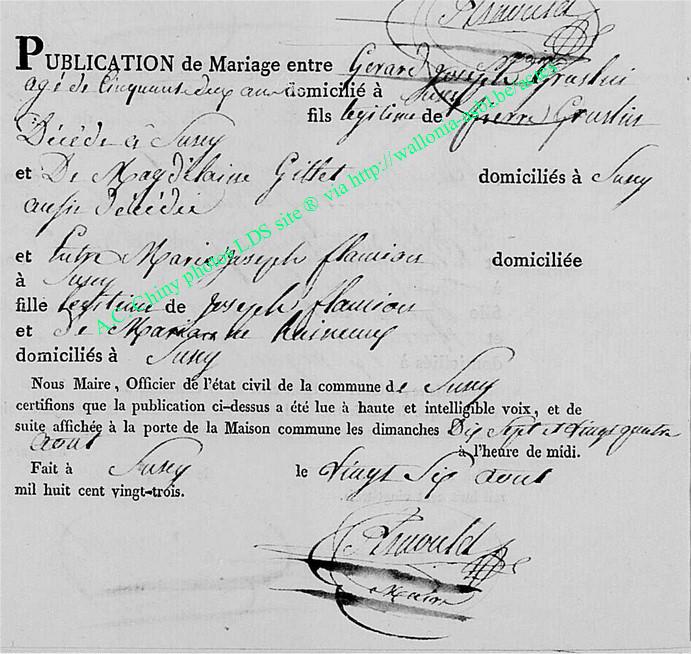 PUBLICATION de Mariage entre Gerard Joseph Gruslin
agé de Cinquante deux ans domicilié à Suxy
fils legitime de Pierre Gruslin
Décédé à Suxy
et De Magdelaine Gillet domiciliés à Suxy
aussi Décédée
et Entre Marie Joseph flamion domiciliée
à Suxy
fille legitime de Joseph flamion
et de Marianne
domiciliés à Suxy
Nous Maire, Officier de l'état civil de la commune de Suxy
certifions que la publication ci-dessus a été lue à haute et intelligible voix, et de
suite affichée à la porte de la Maison commune les dimanches Dix Sept et Vingt quatre
aout à l'heure de midi.
Fait à Suxy le Vingt Six aout
mil huit cent vingt-trois.
Maire
A.C.Chiny photos LDS site ® via http://wallonia-asbl.be/actes